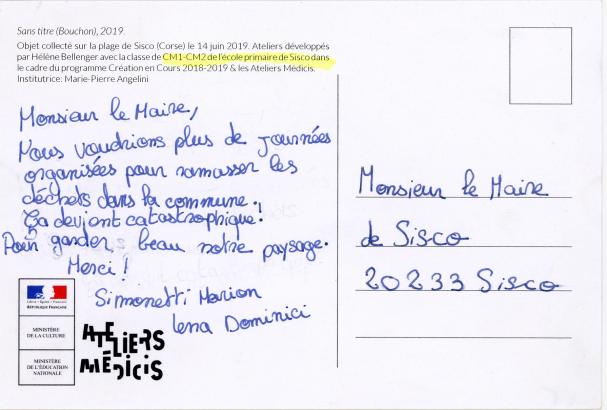 Sans titre (Bouchon), 2019.
Objet collecté sur la plage de Sisco (Corse) le 14 juin 2019. Ateliers développés
par Hélène Bellenger avec la classe de CM1-CM2 de l'école primaire de Sisco dans
le cadre du programme Création en Cours 2018-2019 & les Ateliers Médicis.
Institutrice: Marie-Pierre Angelini
Monsieur le Maire,
Nous voudrions plus de journées
organisées pour ramasser les
déchets dans la commune.
Ça devient catastrophique!
Pour garder beau notre paysage.
Merci!
Simonetti Marion
Lena Dominici
Monsieur le Maire
de Sisco
20233 Sisco
Liberté • Égalité • Fraternité
RÉPUBLIQUE FRANÇAISE
MINISTÈRE
DE LA CULTURE
MINISTÈRE
DE L'ÉDUCATION
NATIONALE
ATELIERS
MÉDICIS